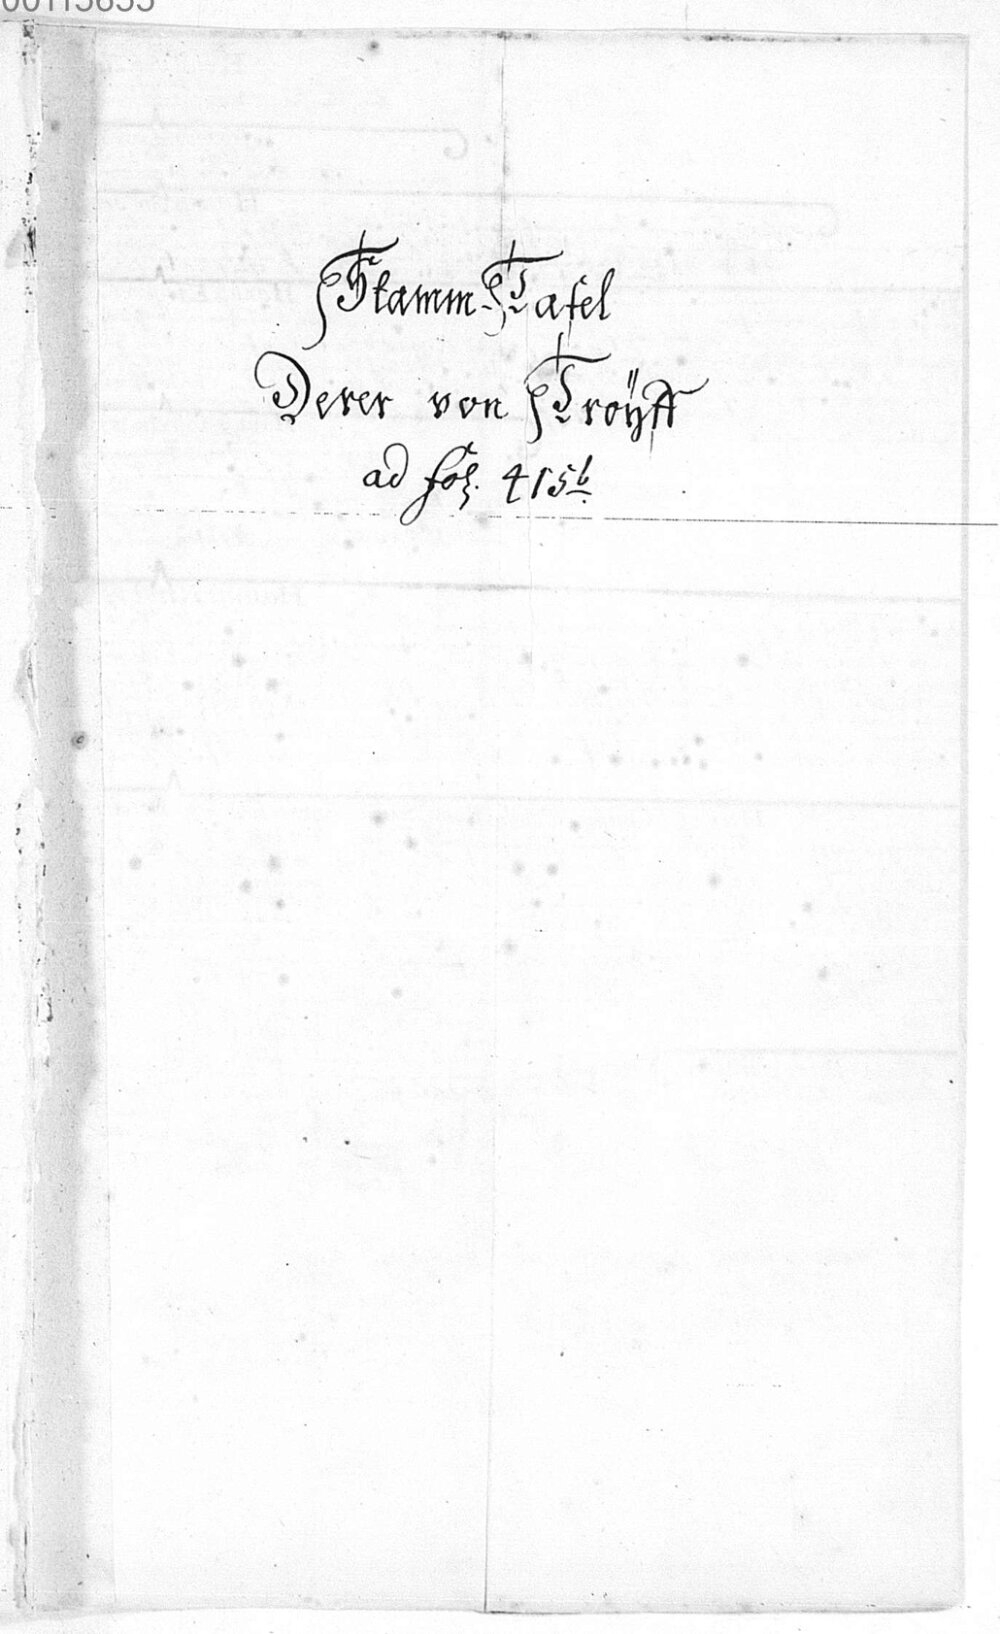 00113635
Stamm-Tafel
Derer von Tröÿff
ad fol. 415b